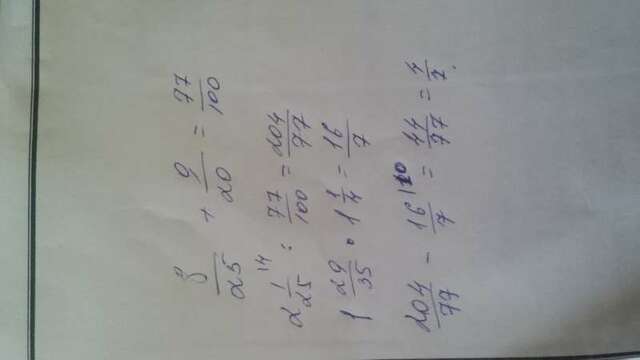 8/25 + 9/20 = 77/100
2 1/25 14 : 77/100 = 204/77
1 29/35 · 1 1/4 = 16/7
204/77 - 16/7 = 44/77 = 4/7.